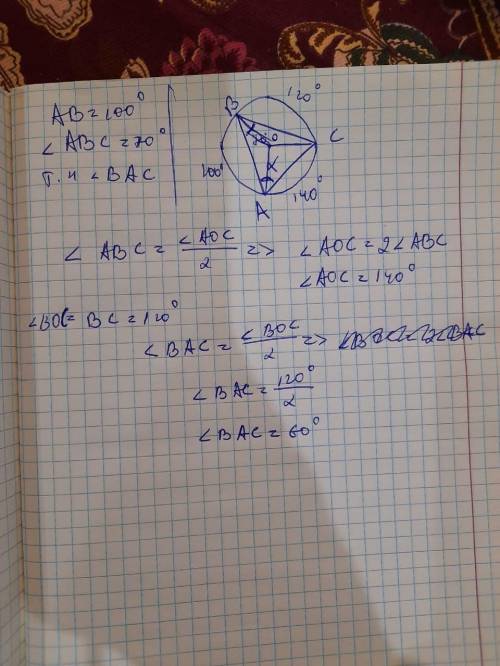 AB = 100°
∠ABC = 70°
т. н ∠BAC
B
120°
C
O
100°
140°
A
∠ABC = ∠AOC/2 => ∠AOC = 2∠ABC
∠AOC = 140°
∠BOC = BC = 120°
∠BAC = ∠BOC/2 =>
∠BAC = 120°/2
∠BAC = 60°